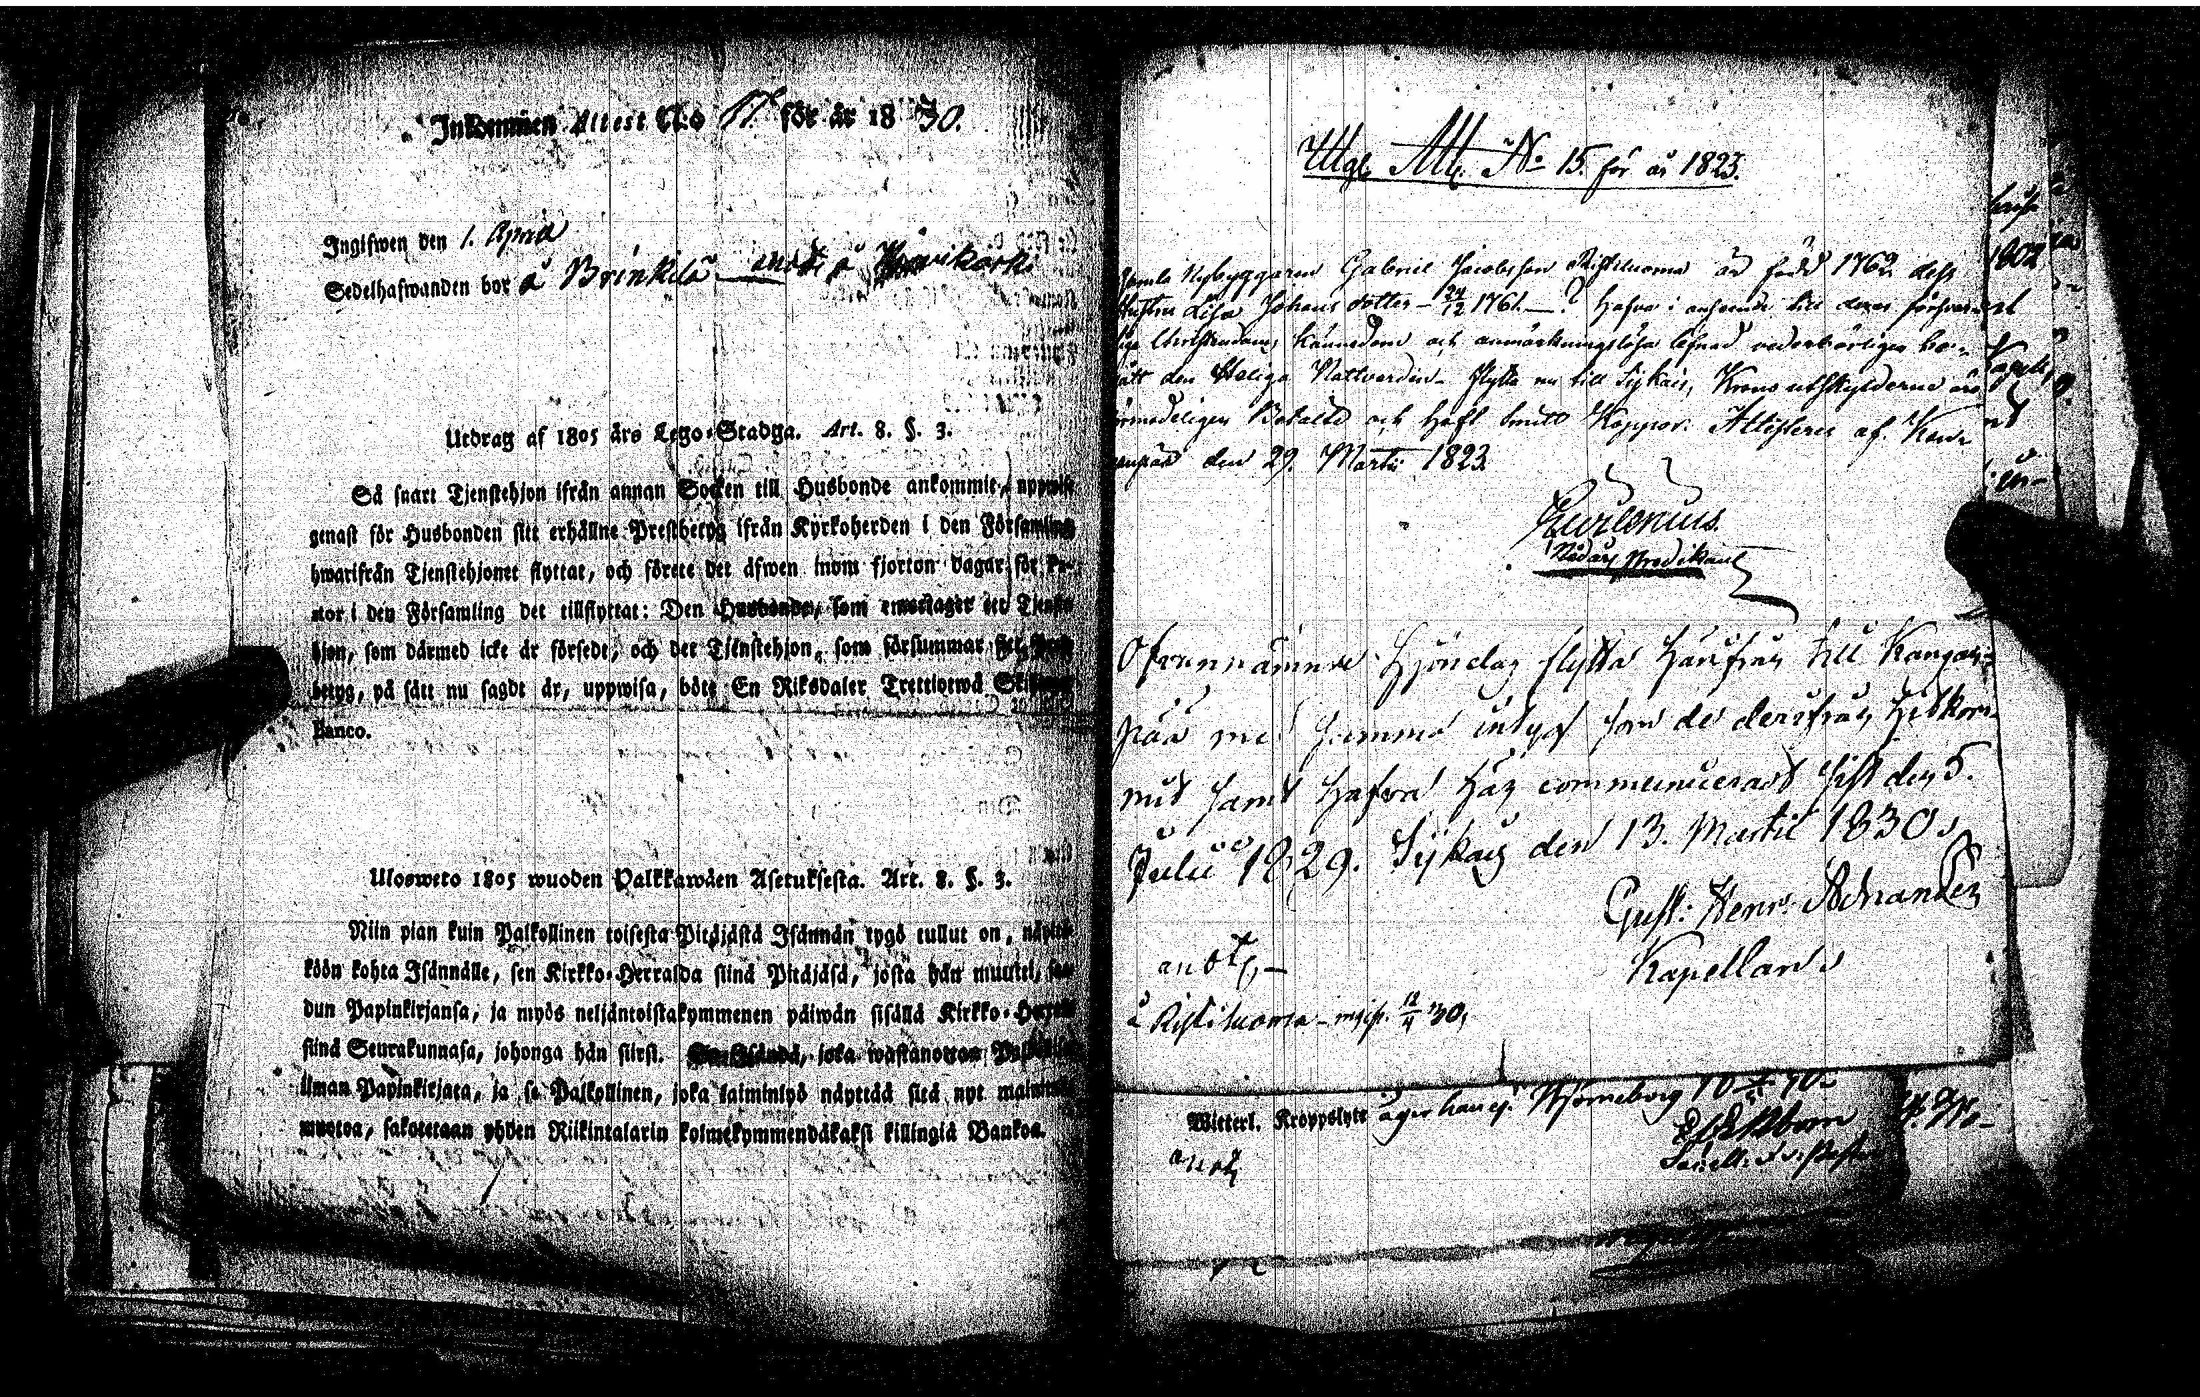 Inkommen Attest No 17 för år 1830.
Ingifwen den 1. April
Sedelhafwanden bor å Brinkilä
Utdrag af 1805 års Lego-Stadga. Art. 8. §. 3.
Så snart Tjenstehjon ifrån annan Socken till Husbonde ankommit, uppwise
genast för Husbonden sitt erhållne Prestbetyg ifrån Kyrkoherden i den Församling
hwarifrån Tjenstehjonet flyttat, och förete det äfwen inom fjorton dagar för Pa-
stor i den Församling det tillflyttat: Den Husbonde, som emottager ett Tjenste
hjon, som därmed icke är försedt, och det Tjenstehjon, som försummar sitt Prest
betyg, på sätt nu sagdt är, uppwisa, böte En Riksdaler Trettiotwå Skilling
Banco.
Ulosweto 1805 wuoden Palkkawäen Asetuksesta. Art. 8. §. 3.
Niin pian kuin Palkollinen toisesta Pitäjästä Isännän tygö tullut on, näyttä
köön kohta Isännälle, sen Kirkko-Herralda siinä Pitäjäsä, josta hän muutti, saa
dun Papinkirjansa, ja myös neljäntoistakymmenen päiwän sisällä Kirkko-Herralle
siinä Seurakunnasa, johonga hän siirsi. Se Isändä, joka wastanottaa Palkollisen
ilman Papinkirjata, ja se Palkollinen, joka laiminlyö näyttää sitä nyt mainittua
muotoa, sakotetaan yhden Riikintalarin kolmekymmendäkaksi killingiä Bankoa.
Utgl. Att. No 15. för år 1823.
Gamla Nybyggaren Gabriel Jacobsson Ristiluoma är född 1762 dess
Hustru Lisa Johans dotter 24/12 1761. — ? Hafva i anseende till deras försvar-
lige Christendoms kännedom och anmärkningslösa lefnad vederbörligen be-
gått den Heliga Nattvarden. flytta nu till Sijkais, Krono utskylderne äro
ömsideligen Betalte och Haft Smitt Koppor. Attesteras af Kan-
canpää den 29. Martii 1823
Nådårs Predikant
Ofvannämnde Hjonelag flytta härifrån till Kangas-
pää med samma intyg som de derifrån hitkom-
mit samt hafva här communicerat sist den 5.
Julii 1829. Sijkais den 13. Martii 1830.
Gust: Henr: Strander
Kapellan
anot. —
å Ristiluoma 12/4 30,
Witterl. Kroppslyte äger han ej. Björneborg
anot